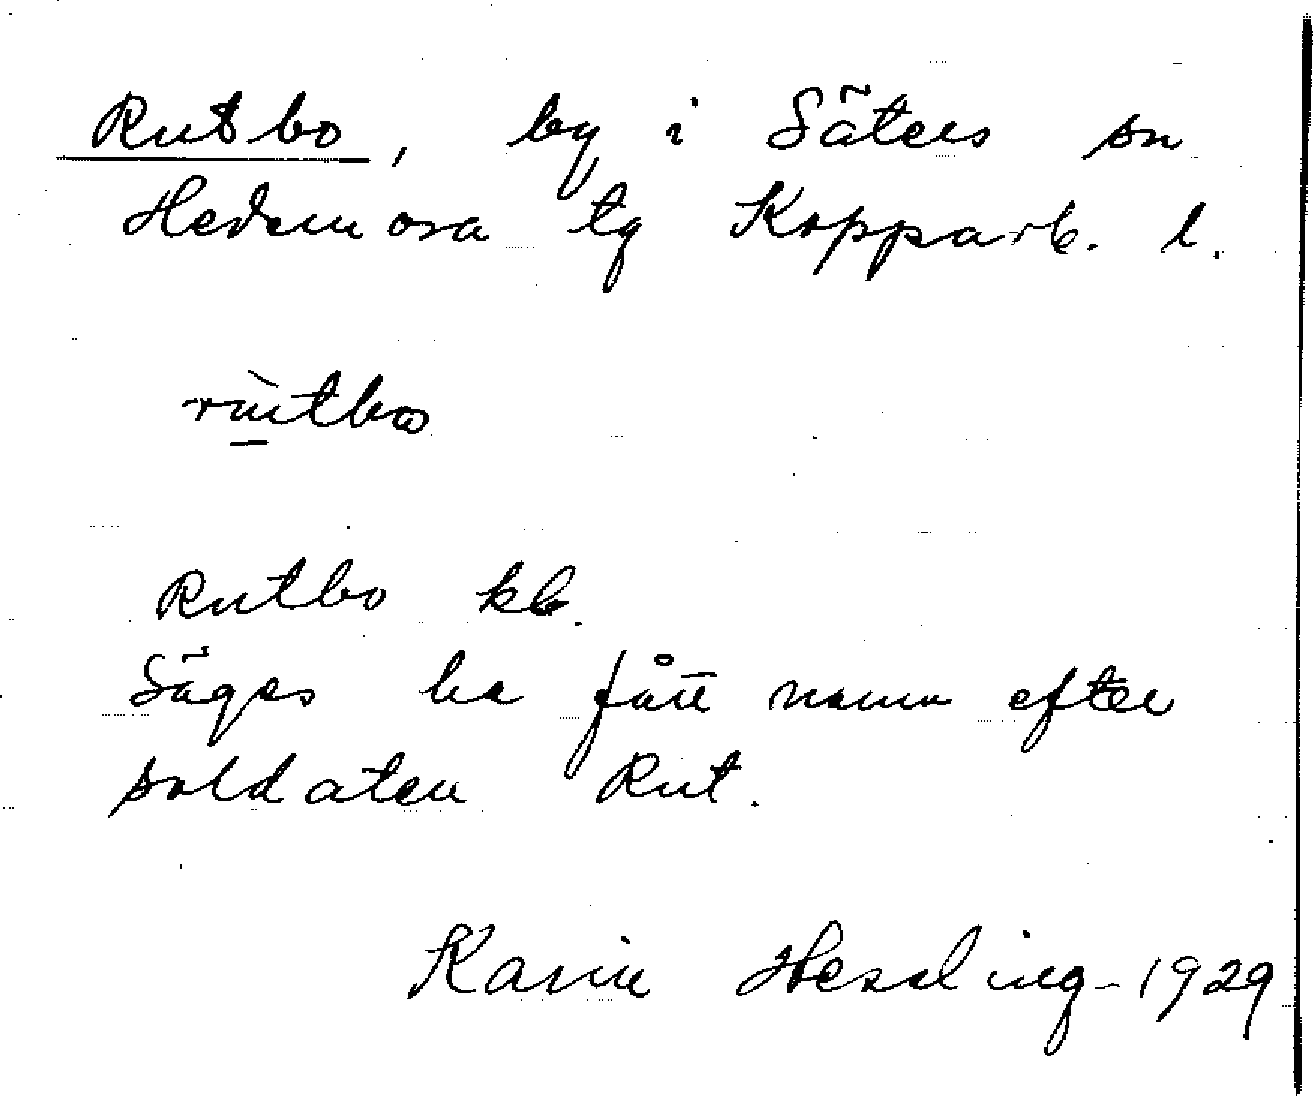 Rutbo, by i Säters sn
Hedemora tg Kopparb. l.
rùtbω
Rutbo kb.
Säges ha fått namn efter
soldaten Rut.
Karin Hessling 1929